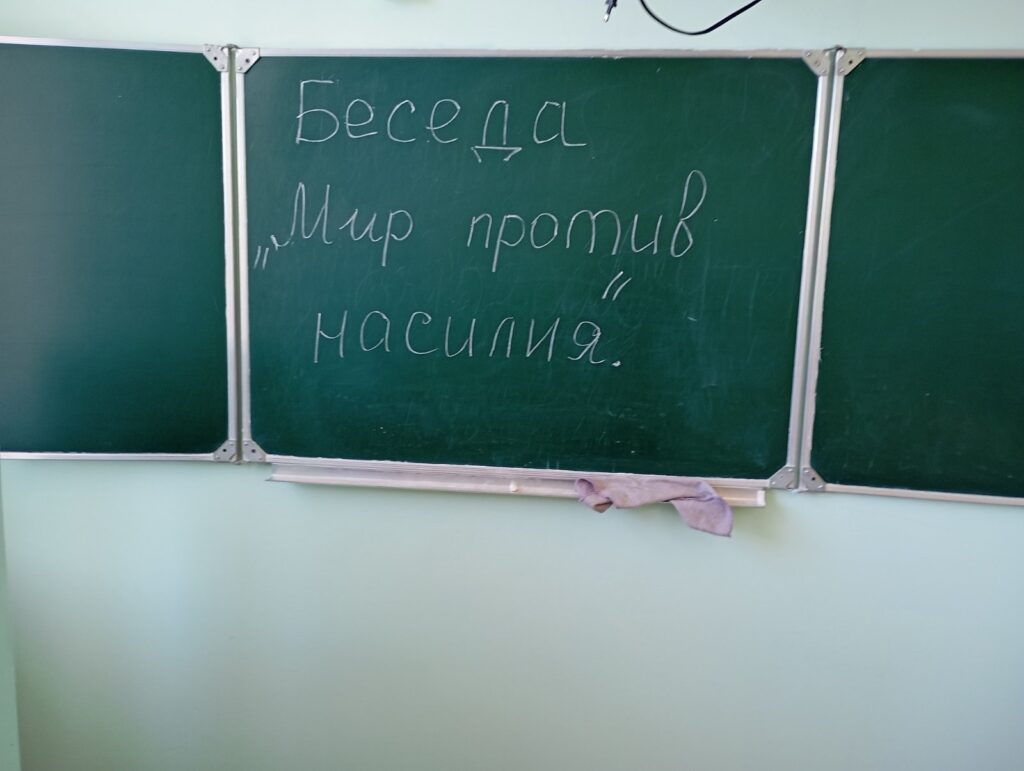 Беседа
„Мир против
насилия."